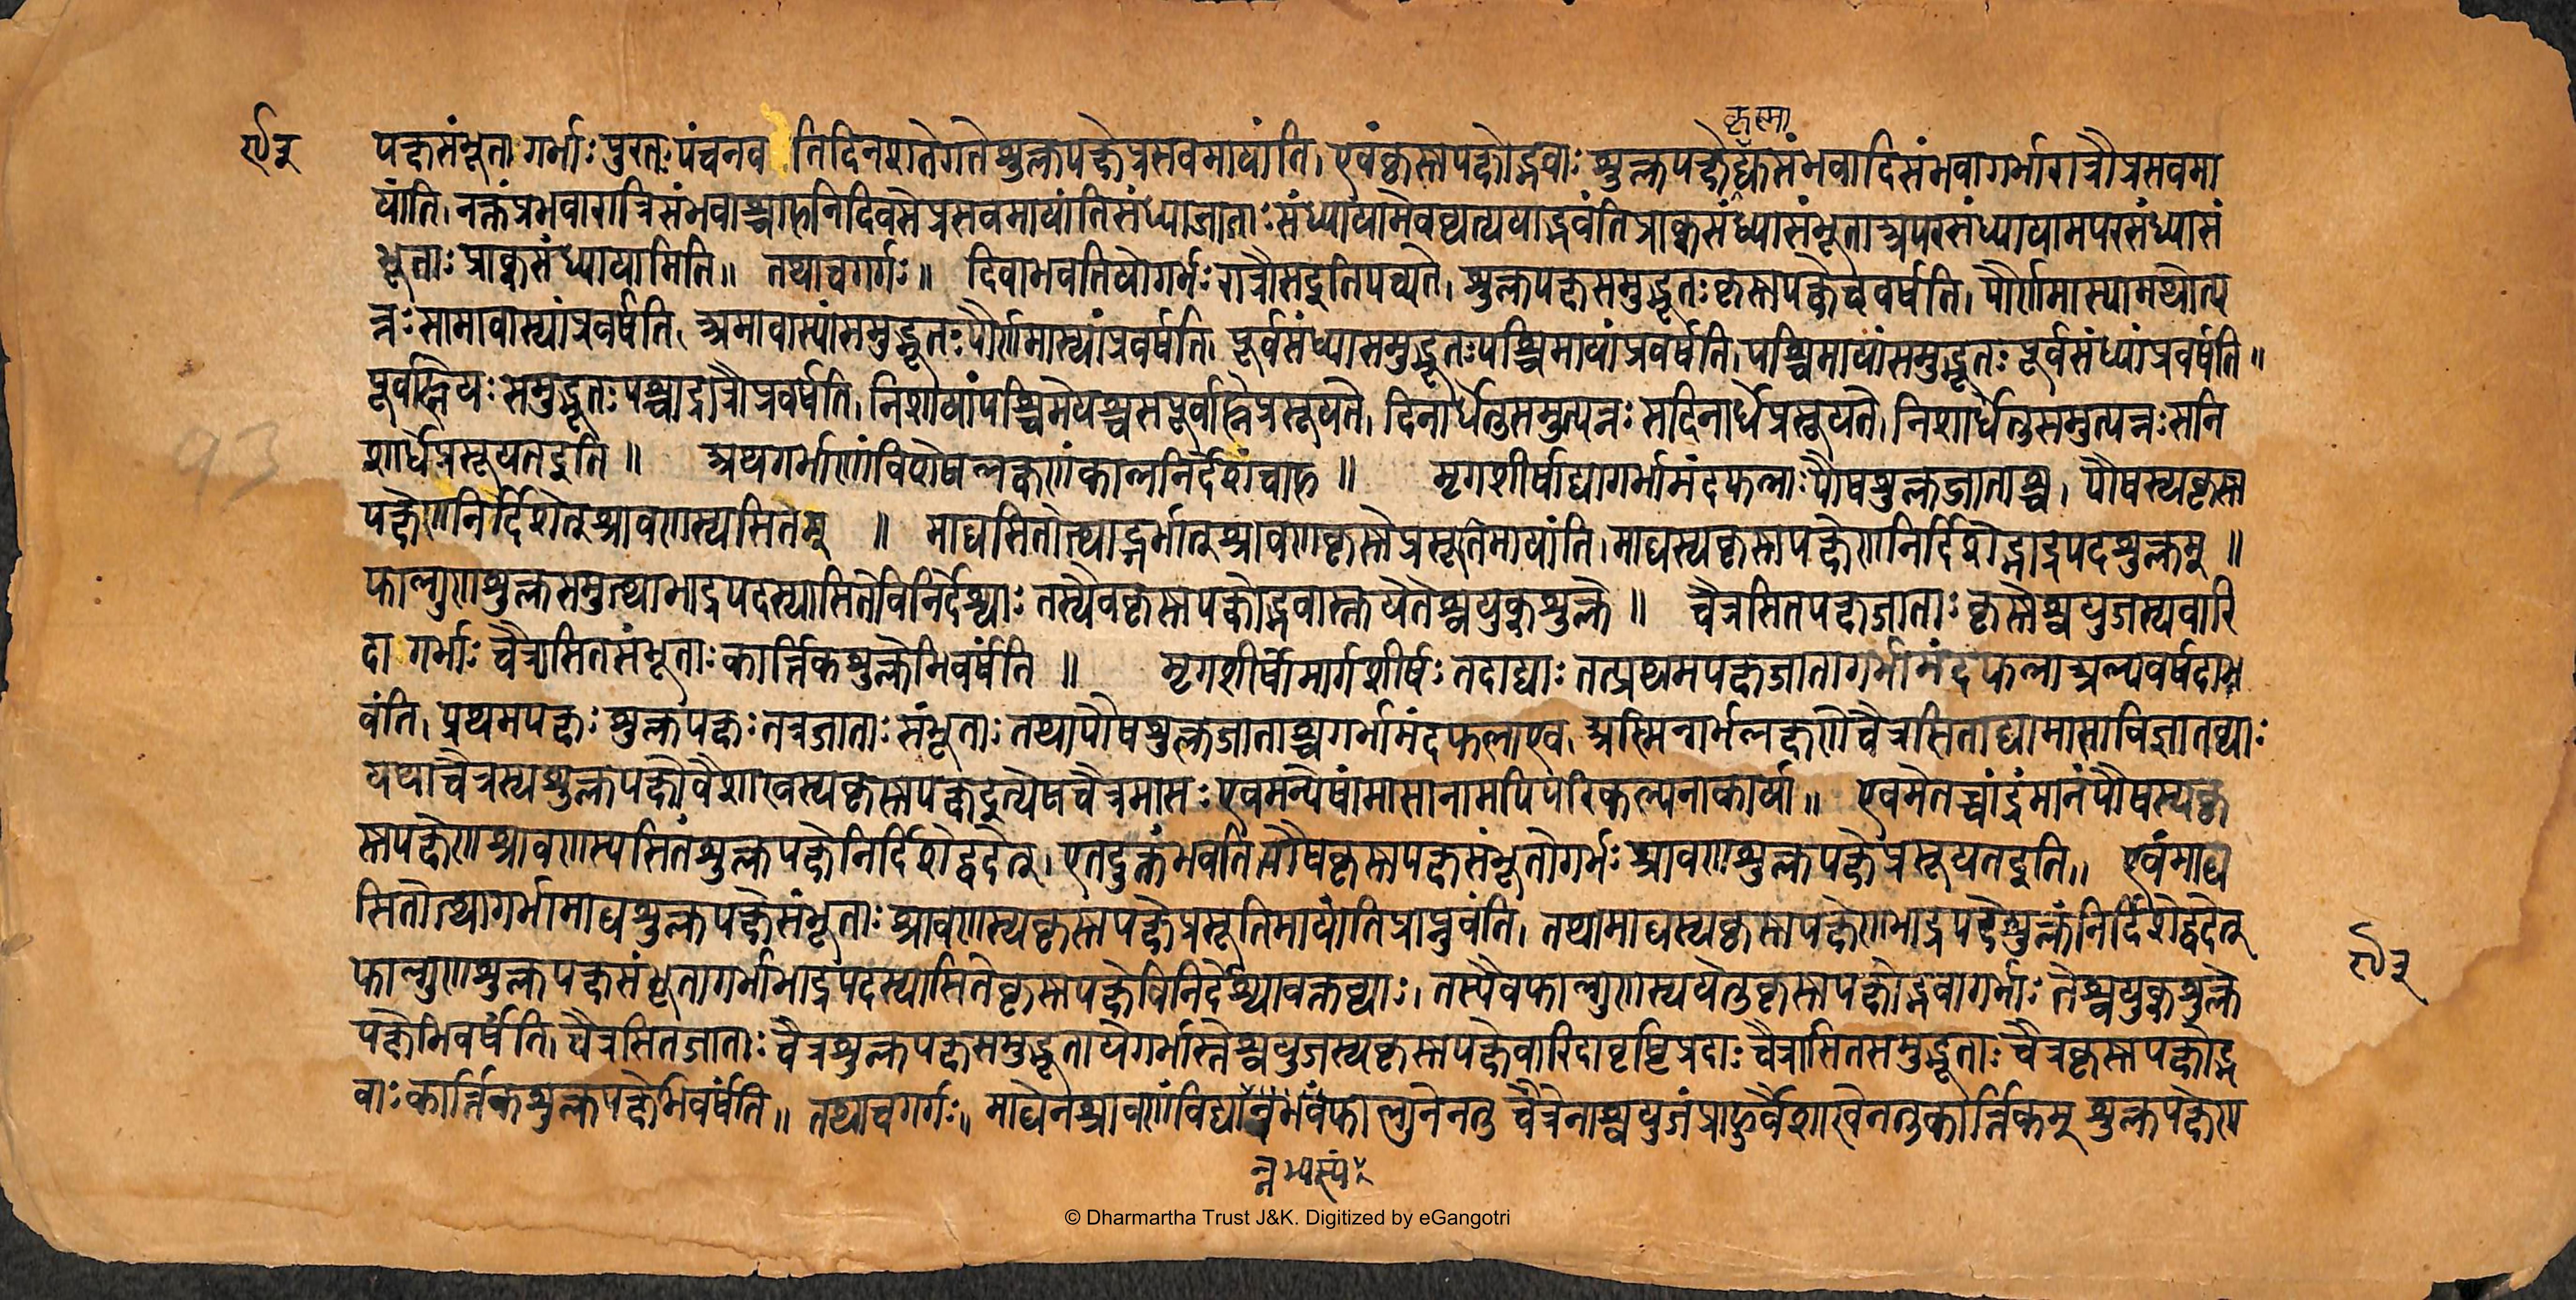 कृष्णा
९३ पक्षसंभूता गर्भाः पुरतः पंचनव तिदिनशतेगतेशुक्लपक्षेप्रसवमायांति। एवंकृष्णपक्षोद्भवाः शुक्लपक्षेद्युसंभवादिसंभवागर्भारात्रौप्रसवमा
यांति। नक्तंप्रभवारात्रिसंभवाश्चाहनिदिवसेप्रसवमायांतिसंध्याजाताः संध्यायामेवव्यत्ययाद्भवंतिप्राक्संध्यासंभूताअपरसंध्यायामपरसंध्यासं
भूताः प्राक्संध्यायामिति॥ तथाचगर्गः॥ दिवाभवतियोगर्भः रात्रौसइतिपच्यते। शुक्लपक्षसमुद्भूतः कृष्णपक्षेचवर्षति। पौर्णमास्यामथोत्प
न्नः सामावास्यांप्रवर्षति। अमावास्यांसमुद्भूतः पौर्णमास्यांप्रवर्षति। पूर्वसंध्यासमुद्भूतः पश्चिमायांप्रवर्षति। पश्चिमायांसमुद्भूतः पूर्वसंध्यांप्रवर्षति॥
पूर्वाह्नेयः समुद्भूतः पश्चाद्रात्रौप्रवर्षति। निशायांपश्चिमेयश्चसपूर्वाह्नेप्रसूयते। दिनार्धेतुसमुत्पन्नः सदिनार्धेप्रसूयते। निशार्धेतुसमुत्पन्नः सनि
शार्धेप्रसूयतइति॥ अथगर्भाणांविशेषलक्षणंकालनिर्देशंचाह॥ मृगशीर्षाद्यागर्भामंदफलाः पौषशुक्लजाताश्च। पौषस्यकृष्ण
पक्षेणनिर्दिशेत्श्रावणस्यसितम्॥ माघसितोत्थाद्गर्भात्श्रावणकृष्णेप्रसूतिमायांति। माघस्यकृष्णपक्षेणनिर्दिशेद्भाद्रपदशुक्लम्॥
फाल्गुणशुक्लसमुत्थाभाद्रपदस्यासितेविनिर्देश्याः तस्यैवकृष्णपक्षोद्भवास्तयेतेश्वयुक्शुक्ले॥ चैत्रसितपक्षजाताः कृष्णेश्वयुजस्यवारि
दा गर्भाः चैत्रासितसंभूताः कार्त्तिकशुक्लेभिवर्षंति॥ मृगशीर्षोमार्गशीर्षः तदाद्याः तत्प्रथमपक्षजातागर्भामंदफलाअल्पवर्षदाभ
वंति। प्रथमपक्षः शुक्लपक्षः तत्रजाताः संभूताः तथापौषशुक्लजाताश्चगर्भामंदफलाएव। अस्मिन्गर्भलक्षणेचैत्रसिताद्यामासाविज्ञातव्याः
यथाचैत्रस्यशुक्लपक्षोवैशाखस्यकृष्णपक्षइत्येषचैत्रमासः एवमन्येषांमासानामपिपरिकल्पनाकार्या॥ एवमेतच्चांद्रंमानंपौषस्यकृ
ष्णपक्षेणश्रावणस्यसितंशुक्लपक्षेनिर्दिशेद्वदेत्। एतदुक्तंभवतिपौषकृष्णपक्षसंभूतोगर्भः श्रावणशुक्लपक्षेप्रसूयतइति॥ एवंमाघ
सितोत्थागर्भामाघशुक्लपक्षेसंभूताः श्रावणस्यकृष्णपक्षेप्रसूतिमायांतिप्राप्नुवंति। तथामाघस्यकृष्णपक्षेणभाद्रपदेशुक्लंनिर्दिशेद्वदेत्
फाल्गुणशुक्लपक्षसंभूतागर्भाभाद्रपदस्यासितेकृष्णपक्षेविनिर्देश्यावक्तव्याः। तस्यैवफाल्गुणस्ययेतुकृष्णपक्षोद्भवागर्भाः तेश्वयुक्शुक्ले ९३
पक्षेभिवर्षंति। चैत्रसितजाताः चैत्रशुक्लपक्षसमुद्भूतायेगर्भास्तेश्वयुजस्यकृष्णपक्षेवारिदावृष्टिप्रदाः चैत्रासितसमुद्भूताः चैत्रकृष्णपक्षोद्भ
वाः कार्त्तिकशुक्लपक्षेभिवर्षंति॥ तथाचगर्गः॥ माघेनश्रावणंविद्यान्नभवंफाल्गुनेनतु चैत्रेनाश्वयुजंप्राहुर्वैशाखेनतुकार्त्तिकम् शुक्लपक्षेण
न्नभस्यं
93
© Dharmartha Trust J&K. Digitized by eGangotri